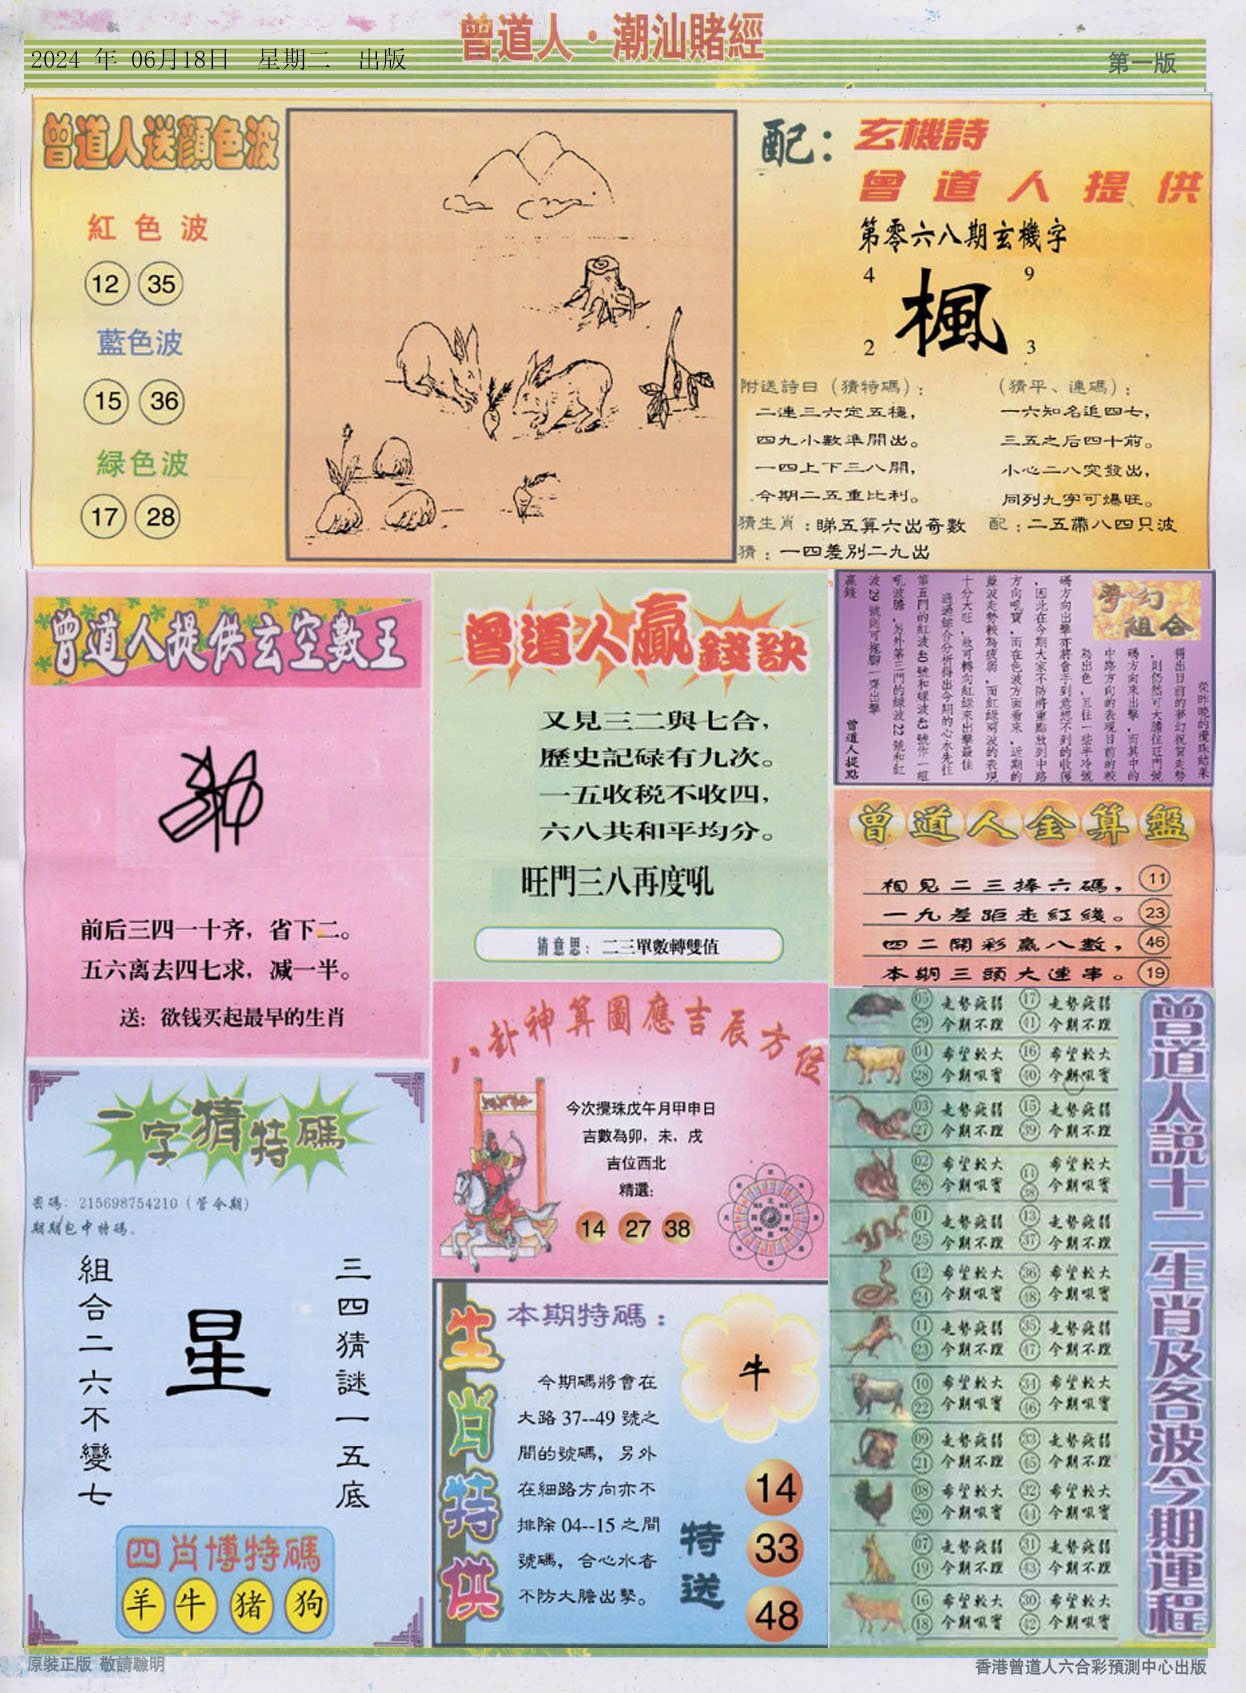 曾道人·潮汕賭經
2024 年 06月18日 星期二 出版
第一版
曾道人送顏色波
紅色波
12 35
藍色波
15 36
緑色波
17 28
配：
玄機詩
曾道人提供
第零六八期玄機字
4 9
楓
2 3
附送詩曰（猜特碼）：
二連三六定五穩，
四九小數準開出。
一四上下三八開，
今期二五重比利。
猜生肖：睇五算六出奇數
猜：一四差別二九出
（猜平、連碼）：
一六知名追四七，
三五之后四十前。
小心二八突發出，
同列九字可爆旺。
配：二五帶八四只波
曾道人提供玄空數王
前后三四一十齐，省下二。
五六离去四七求，减一半。
送：欲钱买起最早的生肖
曾道人贏錢訣
又見三二與七合，
歷史記碌有九次。
一五收税不收四，
六八共和平均分。
旺門三八再度吼
猜意思：二三單數轉雙值
夢幻組合
從昨晚的攪珠結果
得出目前的夢幻祝賀走勢
，則仍然可大膽往旺門號
碼方向來出擊，而其中的
中路方向的表現目前的較
為出色，且往一些半冷號
碼方向出擊亦將會手到意想不到的收獲
，因此在今期大家不防將重點放到中路
方向吼寶，而在色波方面看來，近期的
藍波走勢較為疲弱，而紅綠兩波的表現
十分大旺，故可轉向紅綠來出擊最佳
通過綜介分析得出今期的心水先往
第五門的紅波40號和綠波43號作一組
吼波膽，另外第三門的綠波22號和紅
波29號則可拖腳一齊出擊
贏錢
曾道人提點
曾道人金算盤
相見二三捧六碼， 11
一九差距走紅綫。 23
四二開彩贏八數， 46
本期三頭大連串。 19
一字猜特碼
密碼：215698754210（管令期）
期期包中特碼。
三四猜謎一五底
星
組合二六不變七
四肖博特碼
羊 牛 猪 狗
八卦神算圖應吉辰方位
今次攪珠戊午月甲申日
吉數為卯，未，戌
吉位西北
精選：
14 27 38
生肖特供
本期特碼：
今期碼將會在
大路 37--49 號之
間的號碼，另外
在細路方向亦不
排除 04--15 之間
號碼，合心水者
不防大膽出擊。
牛
特送
14
33
48
曾道人説十二生肖及各波今期運程
05 走勢疲弱 17 走勢疲弱
29 今期不理 41 今期不理
04 希望較大 16 希望較大
28 今期吼實 40 今期吼實
03 走勢疲弱 15 走勢疲弱
27 今期不理 39 今期不理
02 希望較大 14 希望較大
26 今期吼實 38 今期吼實
01 走勢疲弱 13 走勢疲弱
25 今期不理 37 今期不理
12 希望較大 36 希望較大
24 今期吼實 48 今期吼實
11 走勢疲弱 35 走勢疲弱
23 今期不理 47 今期不理
10 希望較大 34 希望較大
22 今期吼實 46 今期吼實
09 走勢疲弱 33 走勢疲弱
21 今期不理 45 今期不理
08 希望較大 32 希望較大
20 今期吼實 44 今期吼實
07 走勢疲弱 31 走勢疲弱
19 今期不理 43 今期不理
16 希望較大 30 希望較大
18 今期吼實 42 今期吼實
原裝正版 敬請聯明
香港曾道人六合彩預測中心出版